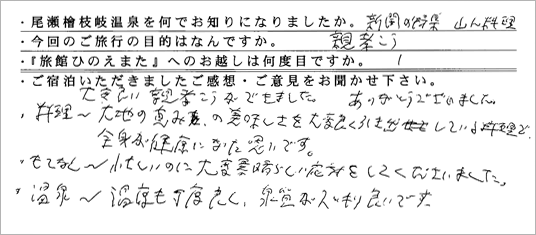 ・尾瀬檜枝岐温泉を何でお知りになりましたか。 新聞の特集 山人料理
・今回のご旅行の目的はなんですか。 親孝こう
・『旅館ひのえまた』へのお越しは何度目ですか。 1
・ご宿泊いただきましたご感想・ご意見をお聞かせ下さい。
大変良い親孝こうができました。 ありがとうございました。
・料理〜大地の恵み の美味しさを大変良く引き している料理で、
全身が健康になった思いです。
・もてなし〜忙しいのに大変素晴らしい応対をしてくださいました。
・温泉〜温度も丁度良く、泉質がスッキリ良いです